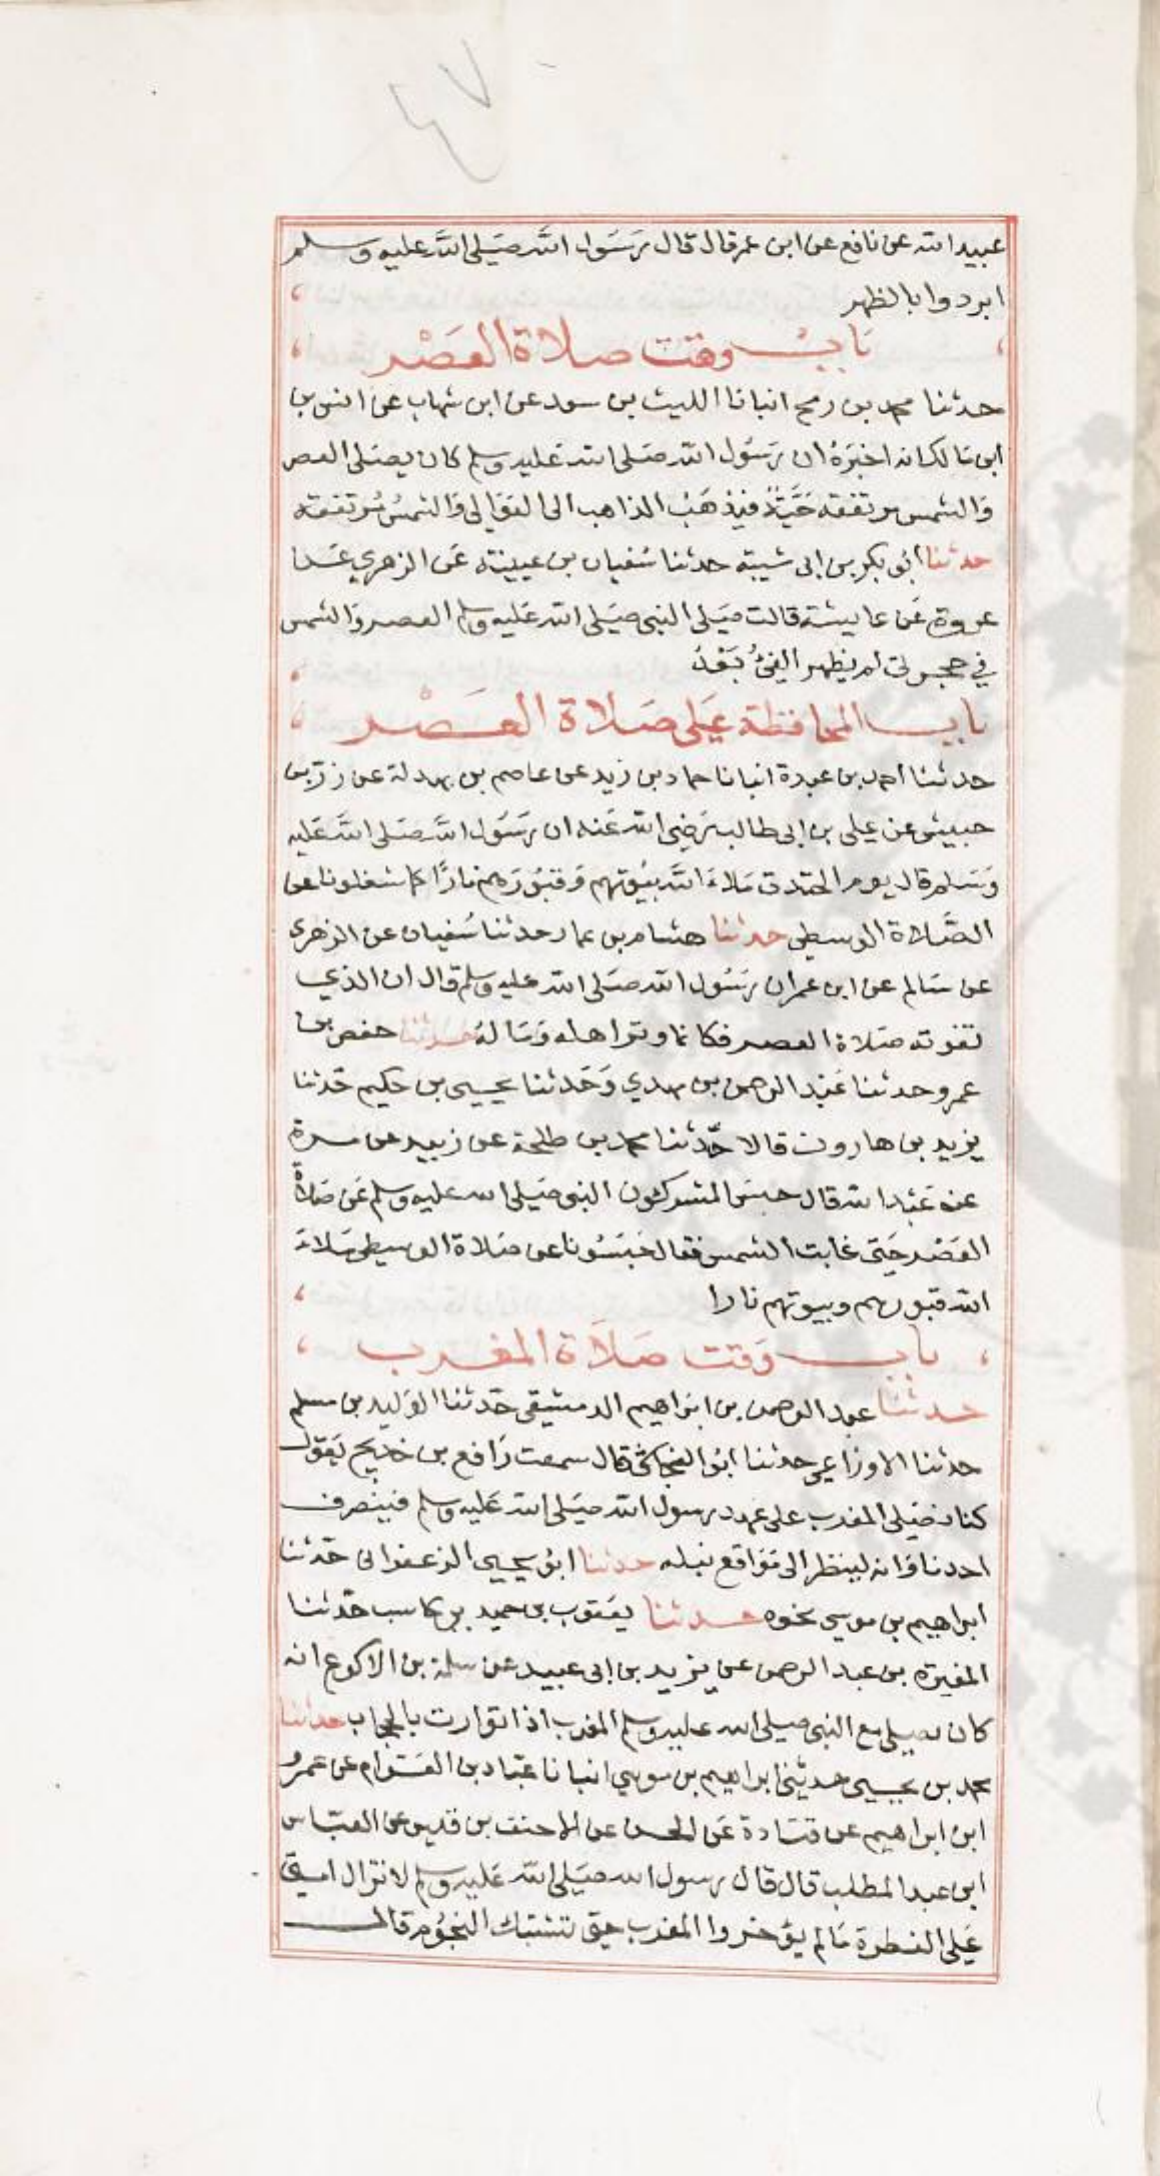 ٤٧
عبيد الله عن نافع عن ابن عمر قال قال رَسَول الله صَلى الله عليه وسلم
ابردوا بالظهر
بَابُ وقت صلاة العَصْر
حدثنا محمد بن رمح انبانا الليث بن سعد عن ابن شهاب عن انس بن
ابن مَالك انه اخبَرَهُ ان رَسُول الله صَلى الله عَليه وسلم كان يصَلى العصر
وَالشمس مرتفعه حَيَّةً فيَذهَبُ الذاهب الى العَوَالى وَالشمسُ مُرتفعة
حدثنا ابُو بكر بن ابى شيبة حدثنا سُفيان بن عيينة عَن الزهري عَن
عروة عَن عايشة قالت صَلى النبى صَلى الله عَليه وسلم العصر وَالشمس
في حجرتى لم يظهر الفئُ بَعْدُ
باب المحافظة عَلى صَلاة العَصْر
حدثنا احمد بن عبدة انبانا حماد بن زيد عن عاصم بن بهدلة عن زر بن
حبيش عن عَلى بن ابى طالب رَضِى الله عَنه ان رَسَول الله صَلى الله عَليه
وَسَلم قال يوم الخندق مَلاءَ الله بيُوتهم وَقبُورَهم نارًا كما شغلونا عن
الصَّلاة الوسطى حدثنا هشام بن عمار حدثنا سُفيان عن الزهرى
عن سَالم عن ابن عمر ان رَسُول الله صَلى الله عليه وسلم قال ان الذي
تفوته صَلاة العصر فكانما وتر اهله وَمَا لهُ حدثنا حفص بن
عمرو حدثنا عَبد الرحمن بن مهدي وَحَدثنا يحيى بن حكيم حَدثنا
يزيد بن هارون قالا حَدّثنا محمد بن طلحة عن زبيد عن مرة
عن عَبْد الله قال حبسَ المشركون النبى صَلى الله عليه وسلم عَن صَلاةَ
العَصْر حَتى غابت الشمس فقال حَبَسُونا عن صَلاة الوسطى مَلاءَ
الله قبورهم وبيوتهم نارا
باب وَقت صَلَاة المغرب
حدثنا عبد الرحمن بن ابرَاهيم الدمشيقى حَدثنا الوَليد بن مسلم
حدثنا الاوزاعى حدثنا ابُو النجاشى قال سمعت رَافع بن خديج يَقول
كنا نصَلى المغرب على عَهد رسول الله صَلى الله عَليه وسلم فينصرف
احدنا وَانه لينظر الى مَوَاقع نبله حدثنا ابو يحيى الزعفرانى حَدثنا
ابراهيم بن موسى نحوه حدثنا يعَقوب بن حميد بن كاسب حَدّثنا
المغيرة بن عبد الرحمن عن يزيد بن ابى عبيد عن سلمة بن الاكوع انه
كان يصلى مع النبى صلى الله عليه وسلم المغرب اذا توارت بالحجاب حدثنا
محمد بن يحيى حدثنى ابراهيم بن موسى انبانا عبّاد بن العَوّام عن عمرُ
ابن ابراهيم عن قتَادة عَن الحسن عن الاحنف بن قيس عن العبّاس
ابن عبد المطلب قال قال رسول الله صَلى الله عَليه وسلم لا تزال امتى
عَلى الفطرة مَالم يؤخروا المغرب حتى تشتبك النجُوم قال